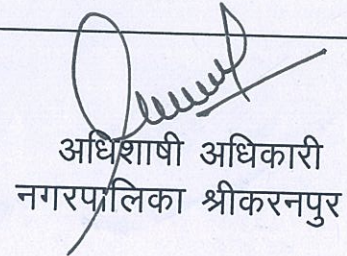 अधिशाषी अधिकारी
नगरपालिका श्रीकरनपुर